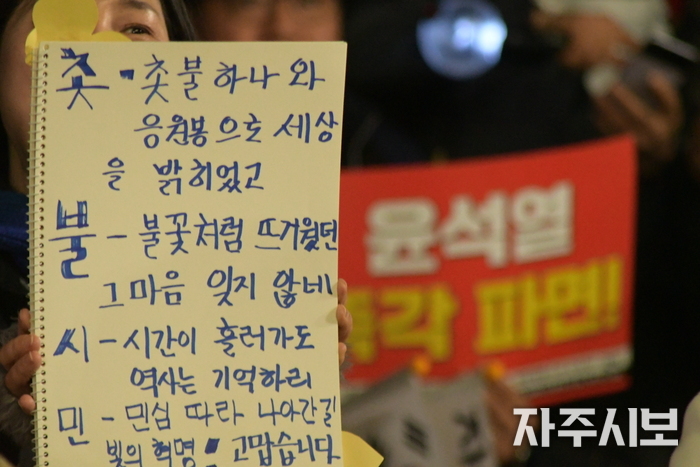 촛 - 촛불 하나 와
응원봉으로 세상
을 밝히었고
불 - 불꽃처럼 뜨거웠던
그마음 잊지 않네
시 - 시간이 흘러가도
역사는 기억하리
민 - 민심 따라 나아간길
빛의 혁명! 고맙습니다
윤석열
즉각 파면!
자주시보